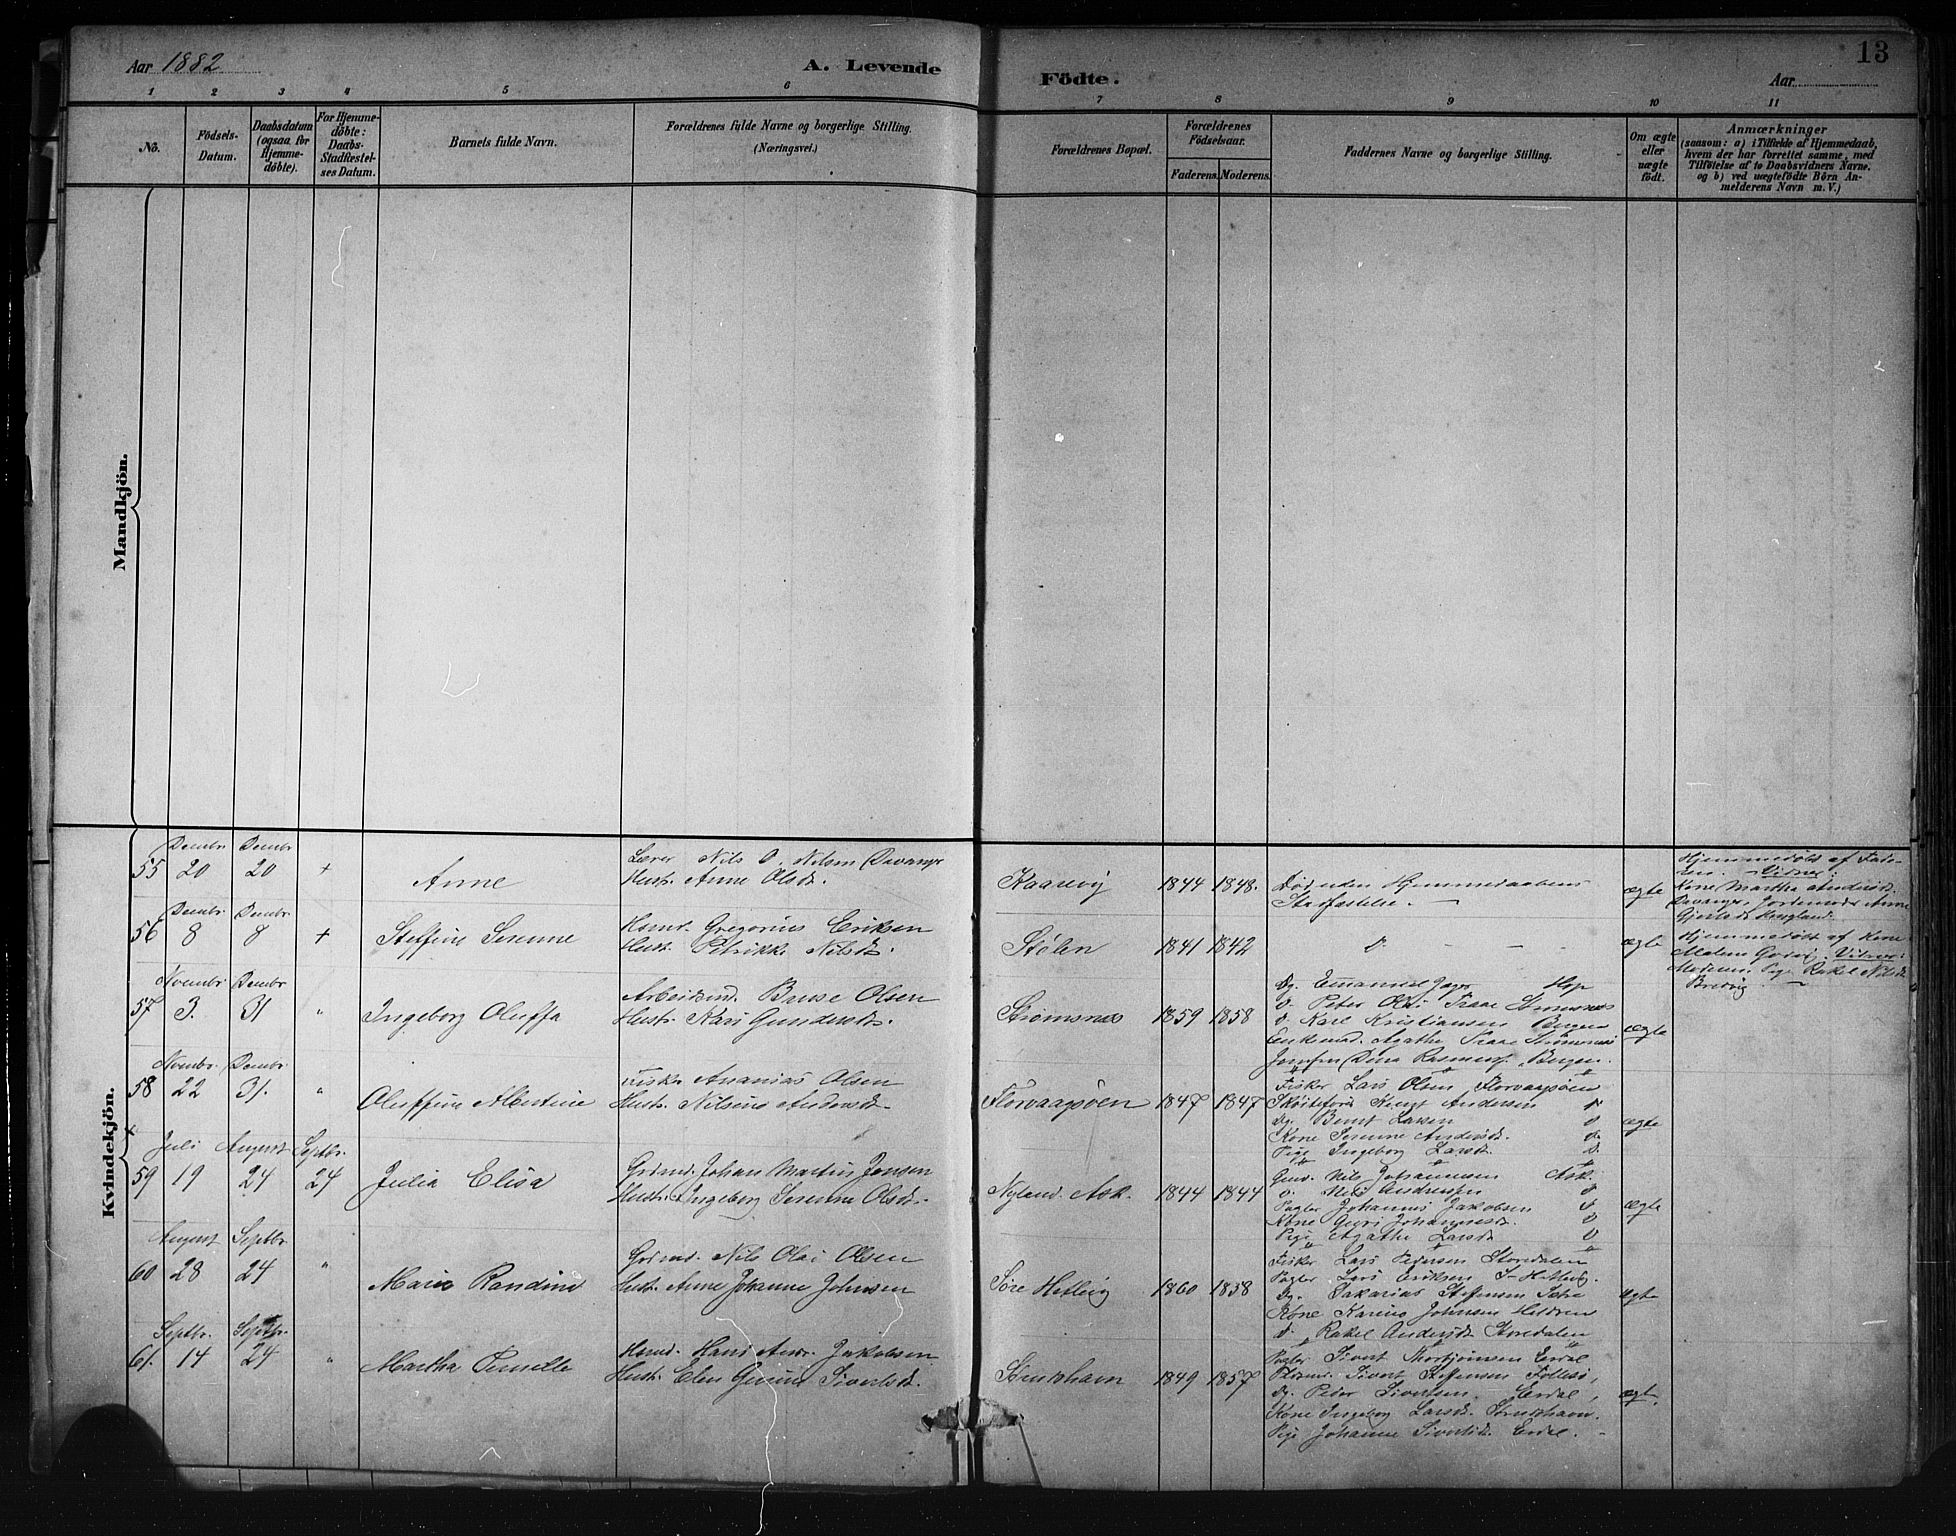 Aar 1882
A. Levende
Födte.
Aar
13
1 2 3 4 5 6 7 8 9 10 11
No.
Födsels-
Datum.
Daabsdatum
(ogsaa for
Hjemme-
döbte).
For Hjemme-
döbte:
Daabs-
Stadfæstel-
ses Datum.
Barnets fulde Navn.
Forældrenes fulde Navne og borgerlige Stilling.
(Næringsvei.)
Forældrenes Bopæl.
Forældrenes
Födselsaar.
Faderens. Moderens.
Faddernes Navne og borgerlige Stilling.
Om ægte
eller
uægte
födt.
Anmærkninger
(saasom: a) i Tilfælde af Hjemmedaab,
hvem der har forrettet samme, med
Tilföielse af to Daabsvidners Navne.
og b) ved uægtefödte Börn An-
melderens Navn m. V.)
Mandkjön.
Kvindekjön.
55
Decmbr
20
Decmbr
20
+
Anne
Lærer Nils O. Nilsen Davanger
Hustr. Anne Olsdt.
Kaarevig
1844
1848.
Död uden Hjemmedaabens
Stadfæstelse. —
ægte
Hjemmedöbt af Fade-
ren. Vidner:
Kone Martha Andersdt.
Davanger, Jordemoder Anne
56
Decmbr.
8
Decmbr.
8
+
Steffine Serenne
Husmd. Gregorius Eriksen
Hust. Petrikke Nilsdt.
Stölen
1841
1842
ægte
Hjemmedöbt af Kone
Vidner:
Moderen, Pige Rakel Nilsdt
Bredvig —
57
Novmbr
3.
Decmbr
31
"
Ingeborg Oluffa
Arbeidsmd. Brusse Olsen
Hustr. Kari Gundersdt.
Strömsnæs
1859
1858
Ug. Emanuel Hop
Peter Olai Traae Strömsnæs
Karl Kristiansen Bergen
Enkemad. Agathe Traae Strömsnæs
Jomfru Dina Rasmuss. Bergen.
ægte
58
Novmbr.
22
Decmbr.
31.
"
Oluffine Albertine
Fisker Ananias Olsen
Hustr. Nilsine Andersdt.
Florvaagsöen
1847
1847
Fisker Lars Olsen Florvaagsöen
Sköitefört Knut Andersen
Ug. Bernt Larsen
Kone Serenne Andersdt.
Pige Ingeborg Larsdt.
ægte
59
Juli
19
August
24
Septbr.
24
Julia Elisa
Grdmd. Johan Martin Jansen
Hustr. Ingeborg Serenne Olsdt.
Nyland Ask.
1844
1844
Nils Johannesen Ask.
Pagler Johannes Jakobsen
Kone Guri Johannesdt.
Pige Agathe Larsdt
ægte
60
August
28
Septbr
24
"
Marie Randine
Grdmd. Nils Olai Olsen
Hustr. Anne Johanne Johnsen
Söre Hetlevig
1860
1838
Fisker Lars Pedersen Storedalen
Pagler Lars Eriksen S- Hetlevig.
Ug. Sakarias Steffensen
Kone Karine Johnsen Heldren
Rakel Andersdt. Storedalen
ægte
61.
Septbr.
14
Septbr.
24
"
Martha Pernille
Husmd. Hans Andr. Jakobsen
Hust. Elen Gurine Sivertsdt.
Strudshavn
1849
1857
Pagler Sivert Thorbjörnsen Erdal
Sivert Steffensen Follesö,
Ug. Peder Sivertsen. Erdal,
Kone Ingeborg Larsdt. Strudshavn.
Pige Johanne Sivertsdt. Erdal. -
ægte.